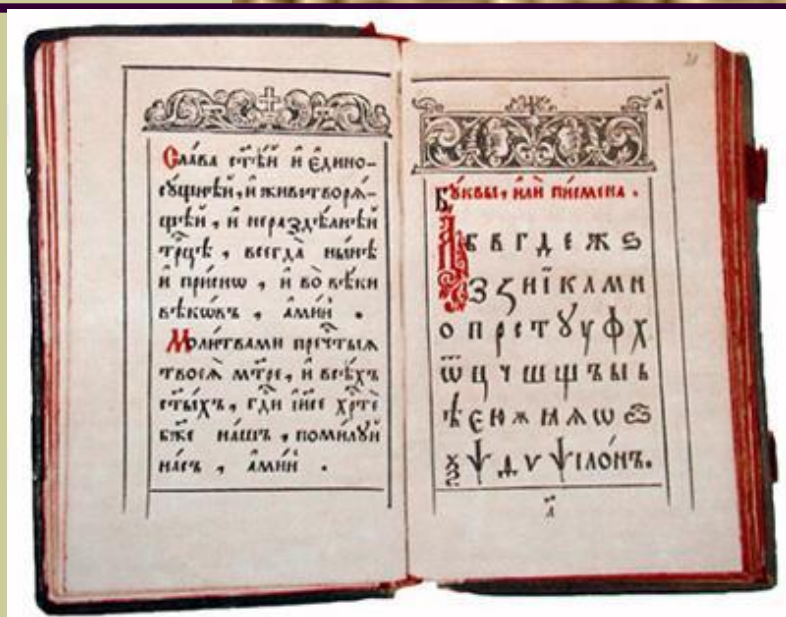 Сла́ва ст҃ѣ́й и҆ є҆дино-
сꙋ́щнѣй, и҆ животворѧ́-
щей, и҆ нераздѣ́льнѣй
трⷪ҇цѣ, всегда̀ ны́нѣ
и҆ при́снѡ, и҆ во вѣ́ки
вѣкѡ́въ, а҆ми́нь.
Моли́твами пречⷭ҇тыѧ
твоеѧ̀ мт҃ре, и҆ всѣ́хъ
ст҃ы́хъ, гдⷭ҇и і҆и҃се хрⷭ҇тѐ
бж҃е на́шъ, поми́лꙋй
на́съ, а҆ми́нь.
Бꙋ́квы, и҆лѝ пи́смена.
А Б В Г Д Е Ж Ѕ
З Ꙁ И Ї К Л М Н
О П Р С Т Ꙋ У Ф Х
Ѿ Ц Ч Ш Щ Ъ Ы Ь
Ѣ Є Ю Ѫ Ꙗ Ѧ Ѡ
Ѯ Ѱ Ѵ